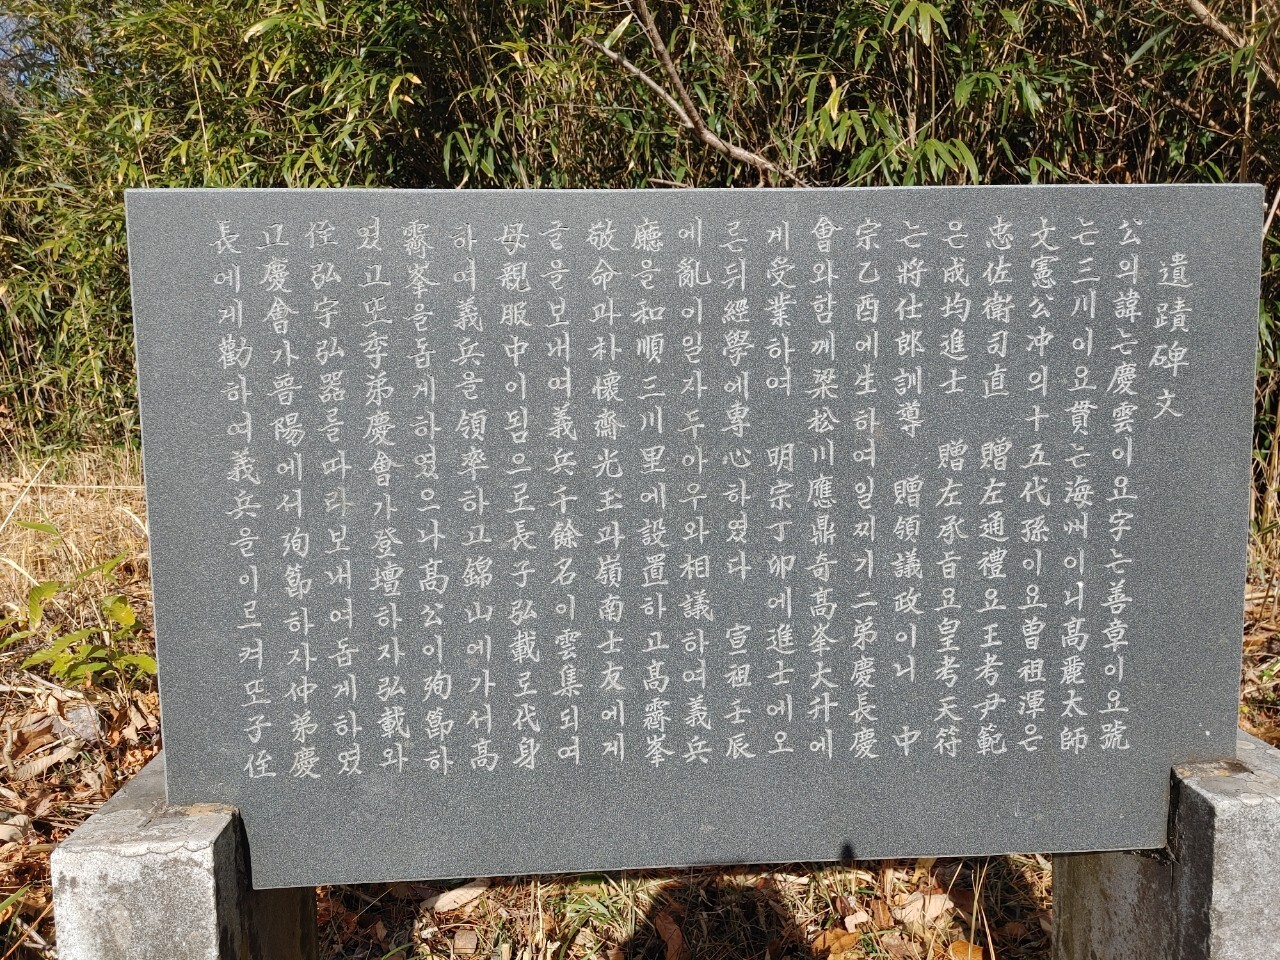 遺蹟碑文
公의諱는慶雲이요字는善章이요號
는三川이요貫는海州이니高麗太師
文憲公冲의十五代孫이요曽祖渾은
忠佐衛司直 贈左通禮요王考尹範
은成均進士 贈左承旨요皇考天符
는將仕郎訓導 贈領議政이니 中
宗乙酉에生하여일찌기二弟慶長慶
會와함께梁松川應鼎奇高峯大升에
게受業하여 明宗丁卯에進士에오
른뒤經學에專心하였다 宣祖壬辰
에亂이일자두아우와相議하여義兵
廳을和順三川里에設置하고高霽峯
敬命과朴懷齋光玉과嶺南士友에게
글을보내여義兵千餘名이雲集되여
母親服中이됨으로長子弘載로代身
하여義兵을領率하고錦山에가서高
霽峯을돕게하였으나高公이殉節하
였고또季弟慶會가登壇하자弘載와
侄弘宇弘器를따라보내여돕게하였
고慶會가晋陽에서殉節하자仲弟慶
長에게勸하여義兵을이르켜또子侄